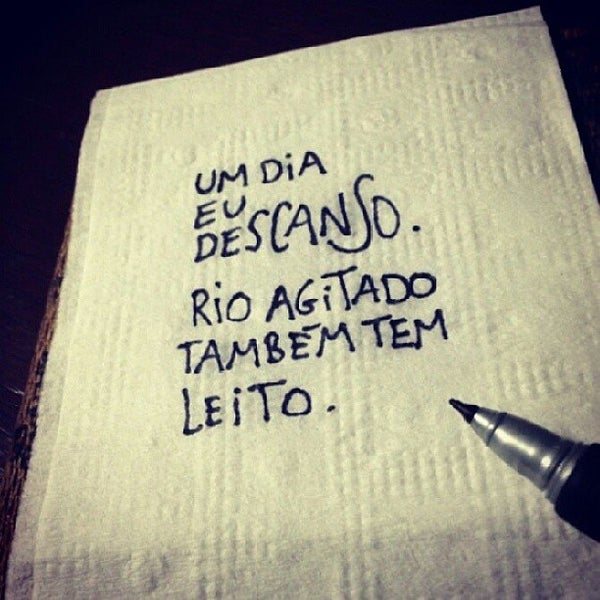 UM DiA
EU
DESCANSO.
RiO AGiTADO
TAMBÉM TEM
LEiTO.